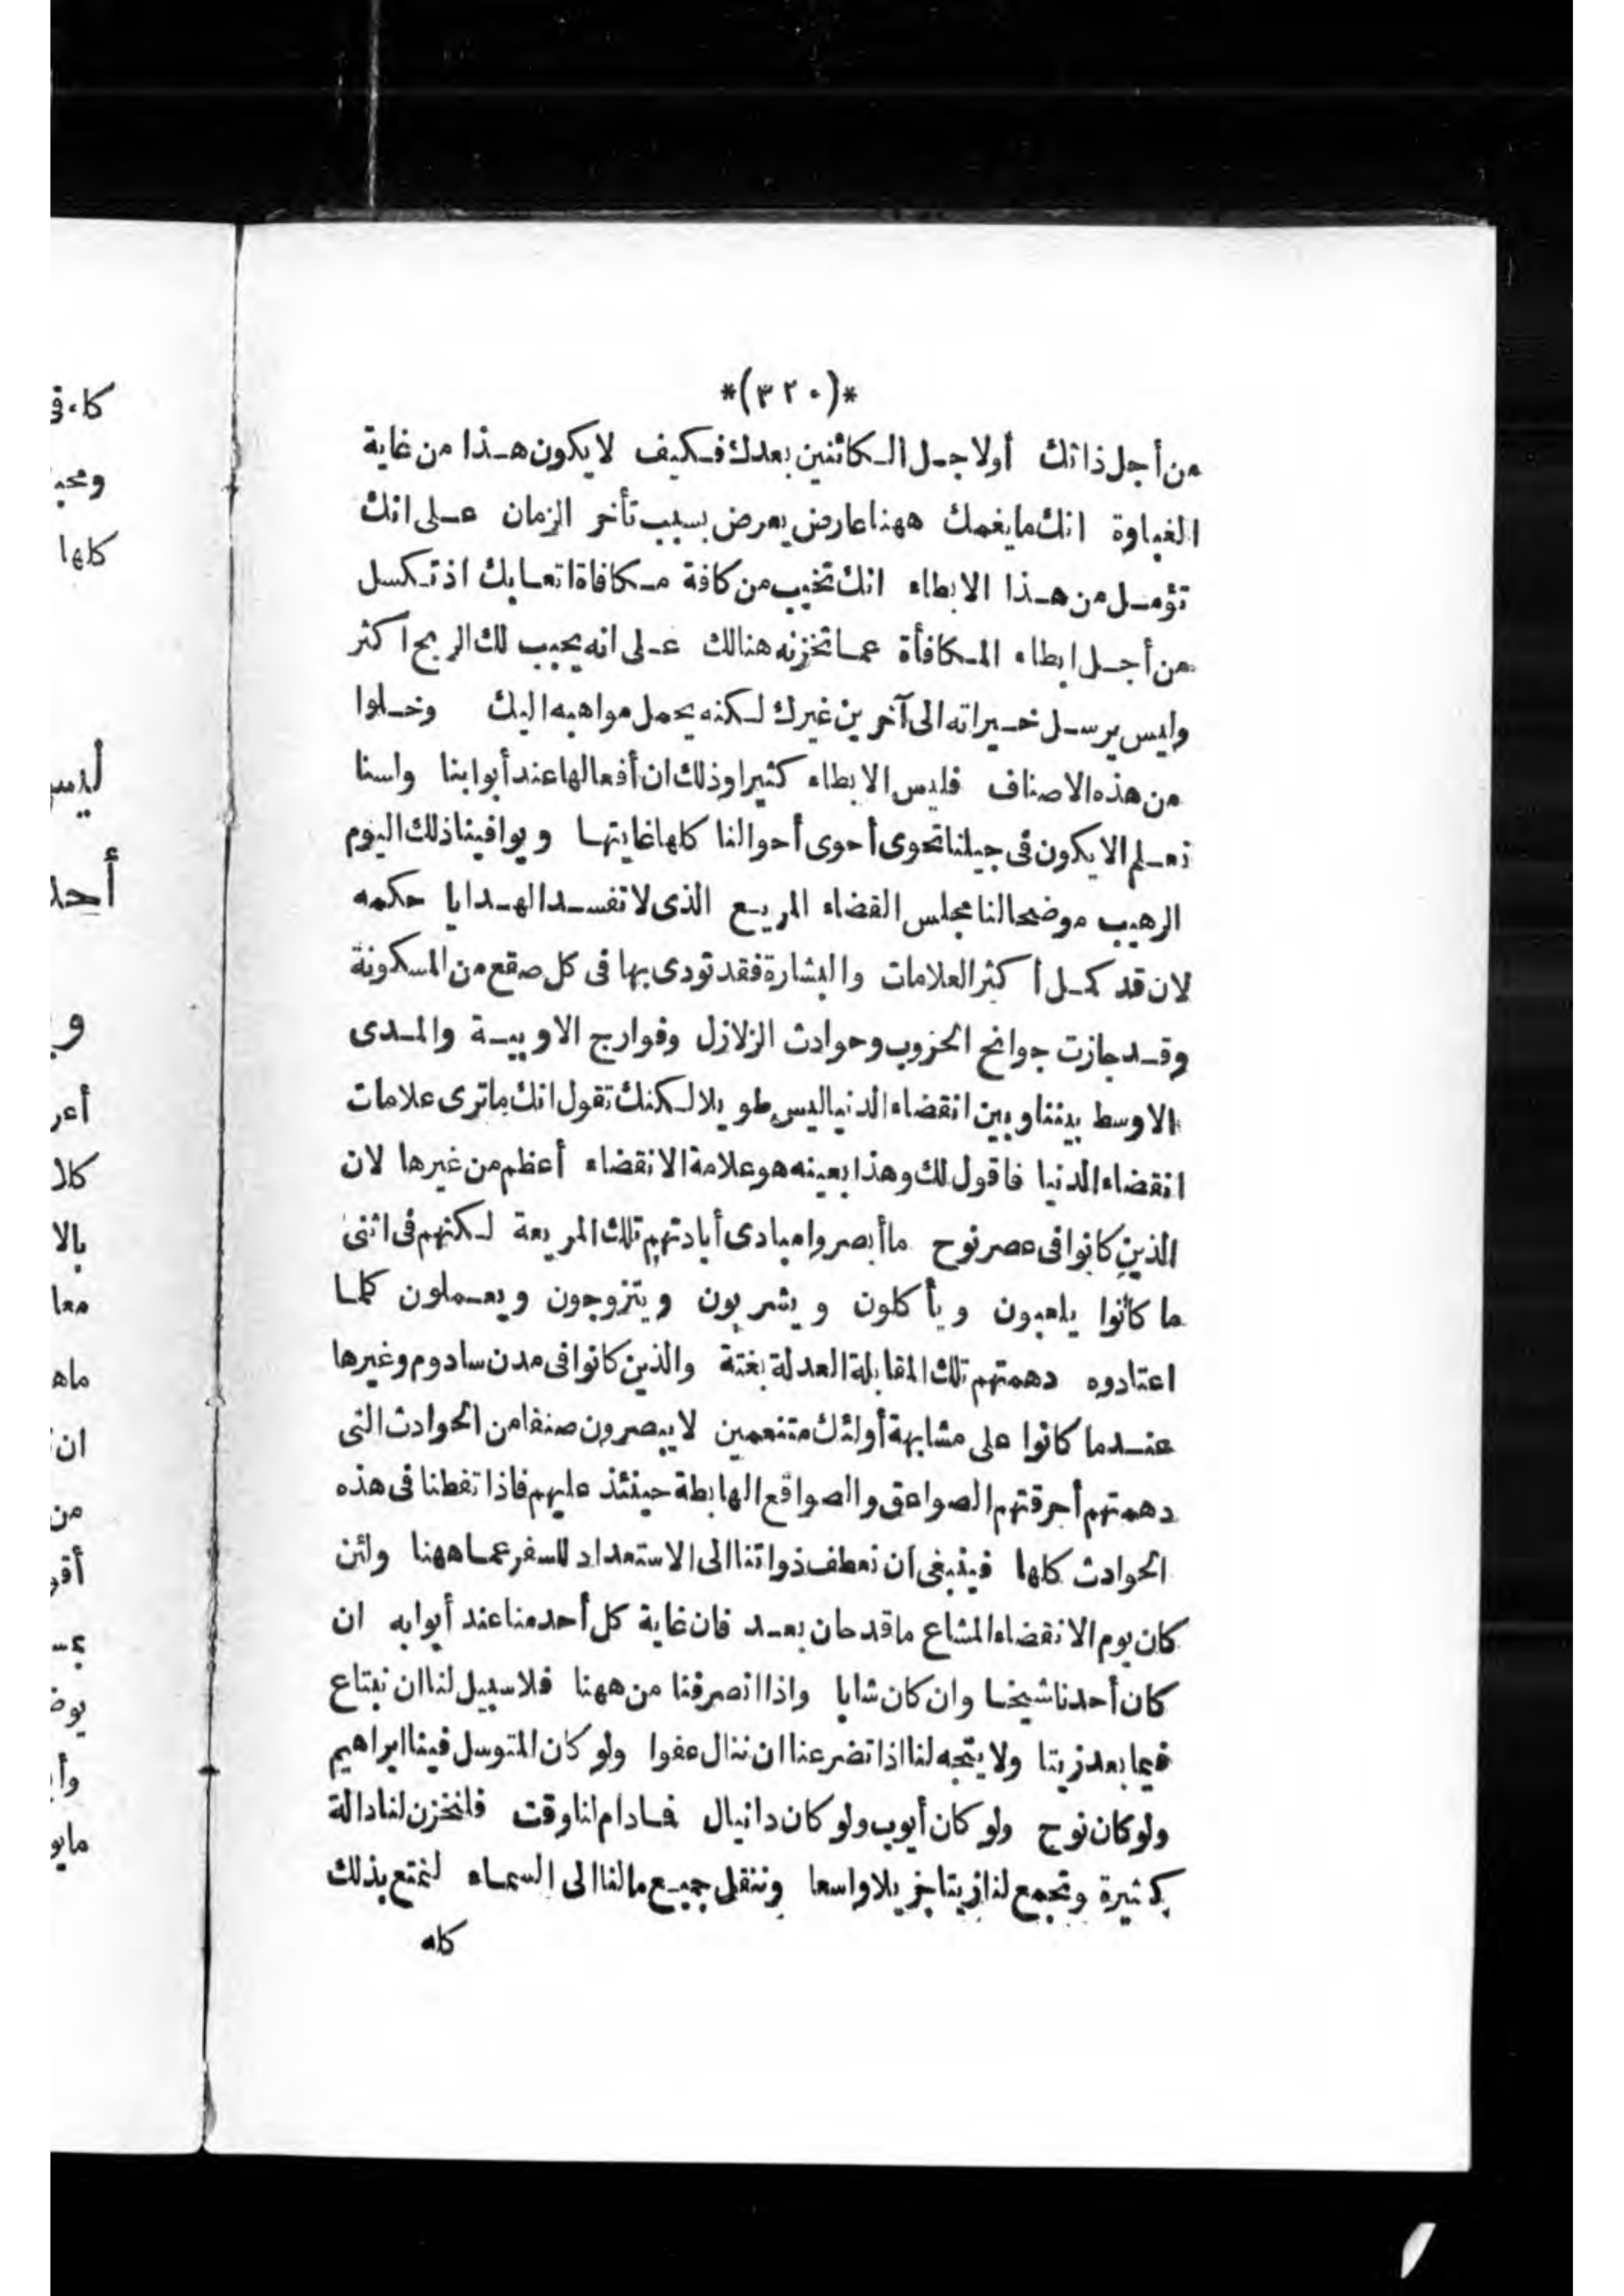 *(٣٢٠)*
من أجل ذاتك أولاجل الكائنين بعدك فكيف لا يكون هذا من غاية
الغباوة انك ما يغمك ههنا عارض يعرض بسبب تأخر الزمان على انك
تؤمل من هذا الابطاء انك تخيب من كافة مكافاة اتعابك اذ تكسل
من أجل ابطاء المكافأة عما تخزنه هنالك على انه يجيب لك الربح اكثر
وليس يرسل خيراته الى آخرين غيرك لكنه يحمل مواهبه اليك وخلوا
من هذه الاصناف فليس الابطاء كثيرا وذلك ان أفعالها عند أبوابنا ولسنا
نعلم الا يكون فى جيلنا تحوى أحوى أحوالنا كلها غايتها ويوافينا ذلك اليوم
الرهيب موضحا لنا مجلس القضاء المريع الذى لا تفسد الهدايا حكمه
لان قد كمل أكثر العلامات والبشارة فقد نودى بها فى كل صقع من المسكونة
وقد جازت جوائح الحزوب وحوادث الزلازل وفوارج الاوبية والمدى
الاوسط بيننا وبين انقضاء الدنيا ليس طويلا لكنك تقول انك ما ترى علامات
انقضاء الدنيا فاقول لك وهذا بعينه هو علامة الانقضاء أعظم من غيرها لان
الذين كانوا فى عصر نوح ما أبصروا مبادى أبادتهم تلك المريعة لكنهم فى اثنى
ما كانوا يلعبون ويأكلون ويشربون ويتزوجون ويعملون كلما
اعتادوه دهمتهم تلك المقابلة العدلة بغتة والذين كانوا فى مدن سادوم وغيرها
عندما كانوا على مشابهة أولئك متنعمين لا يبصرون صنفا من الحوادث التى
دهمتهم أحرقتهم الصواعق والصواقع الهابطة حينئذ عليهم فاذا تفطنا فى هذه
الحوادث كلها فينبغى ان نعطف ذواتنا الى الاستعداد للسفر عما ههنا ولئن
كان يوم الانقضاء المشاع ما قد حان بعد فان غاية كل أحد منا عند أبوابه ان
كان أحدنا شيخا وان كان شابا واذا انصرفنا من ههنا فلا سبيل لنا ان نبتاع
فيما بعد زيتا ولا يتجه لنا اذا تضرعنا ان ننال عفوا ولو كان المتوسل فينا ابراهيم
ولو كان نوح ولو كان أيوب ولو كان دانيال فما دام لنا وقت فلنخزن لنا دالة
كثيرة ونجمع لنا زيتا جزيلا واسعا وننقل جميع ما لنا الى السماء لنمتع بذلك
كله
كلها